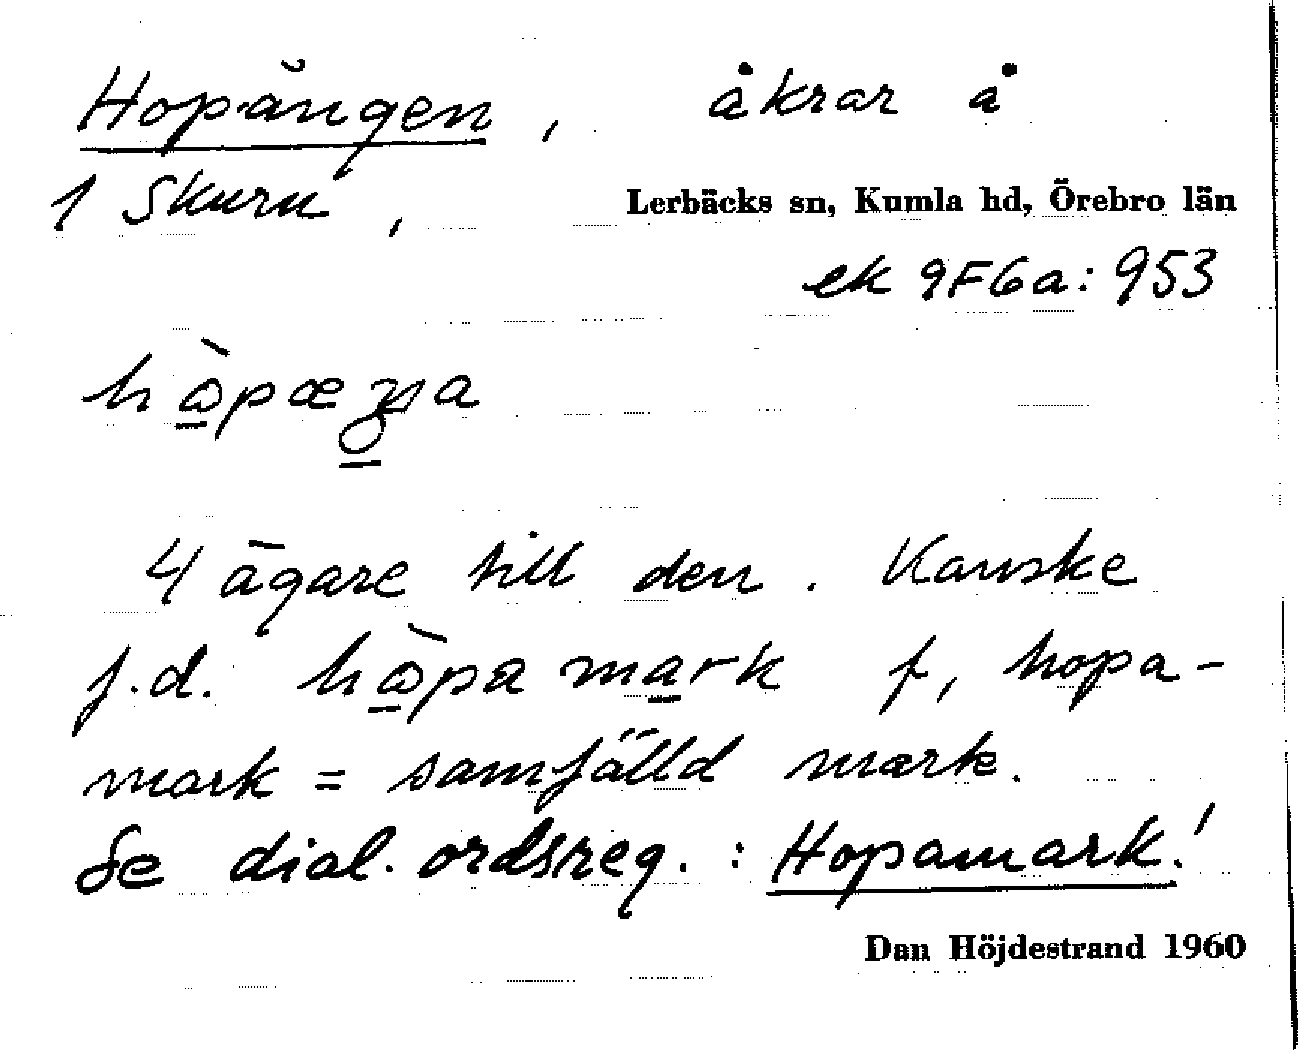 Hopängen, åkrar å
1 Skuru, Lerbäcks sn, Kumla hd, Örebro län
ek 9F6a: 953
4 ägare till den. Kanske
f.d. hòpa mark f, hopa-
mark = samfälld mark.
Se dial. ordsreg.: Hopamark!
Dan Höjdestrand 1960